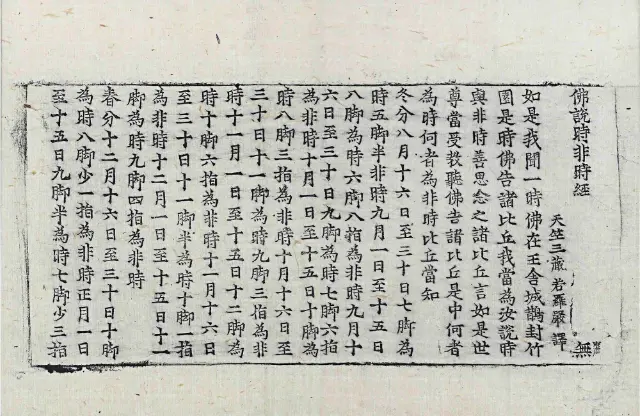 佛說時非時經
無
天竺三藏若羅嚴譯
如是我聞一時佛在王舍城鵲封竹
園是時佛告諸比丘我當為汝說時
與非時善思念之諸比丘言如是世
尊當受教聽佛告諸比丘是中何者
為時何者為非時比丘當知
冬分八月十六日至三十日七脚為
時五脚半非時九月一日至十五日
八脚為時六脚八指為非時九月十
六日至三十日九脚為時七脚六指
為非時十月一日至十五日十脚為
時八脚三指為非時十月十六日至
三十日十一脚為時九脚三指為非
時十一月一日至十五日十二脚為
時十脚六指為非時十一月十六日
至三十日十一脚半為時十脚一指
為非時十二月一日至十五日十一
脚為時九脚四指為非時
春分十二月十六日至三十日十脚
為時八脚少一指為非時正月一日
至十五日九脚半為時七脚少三指